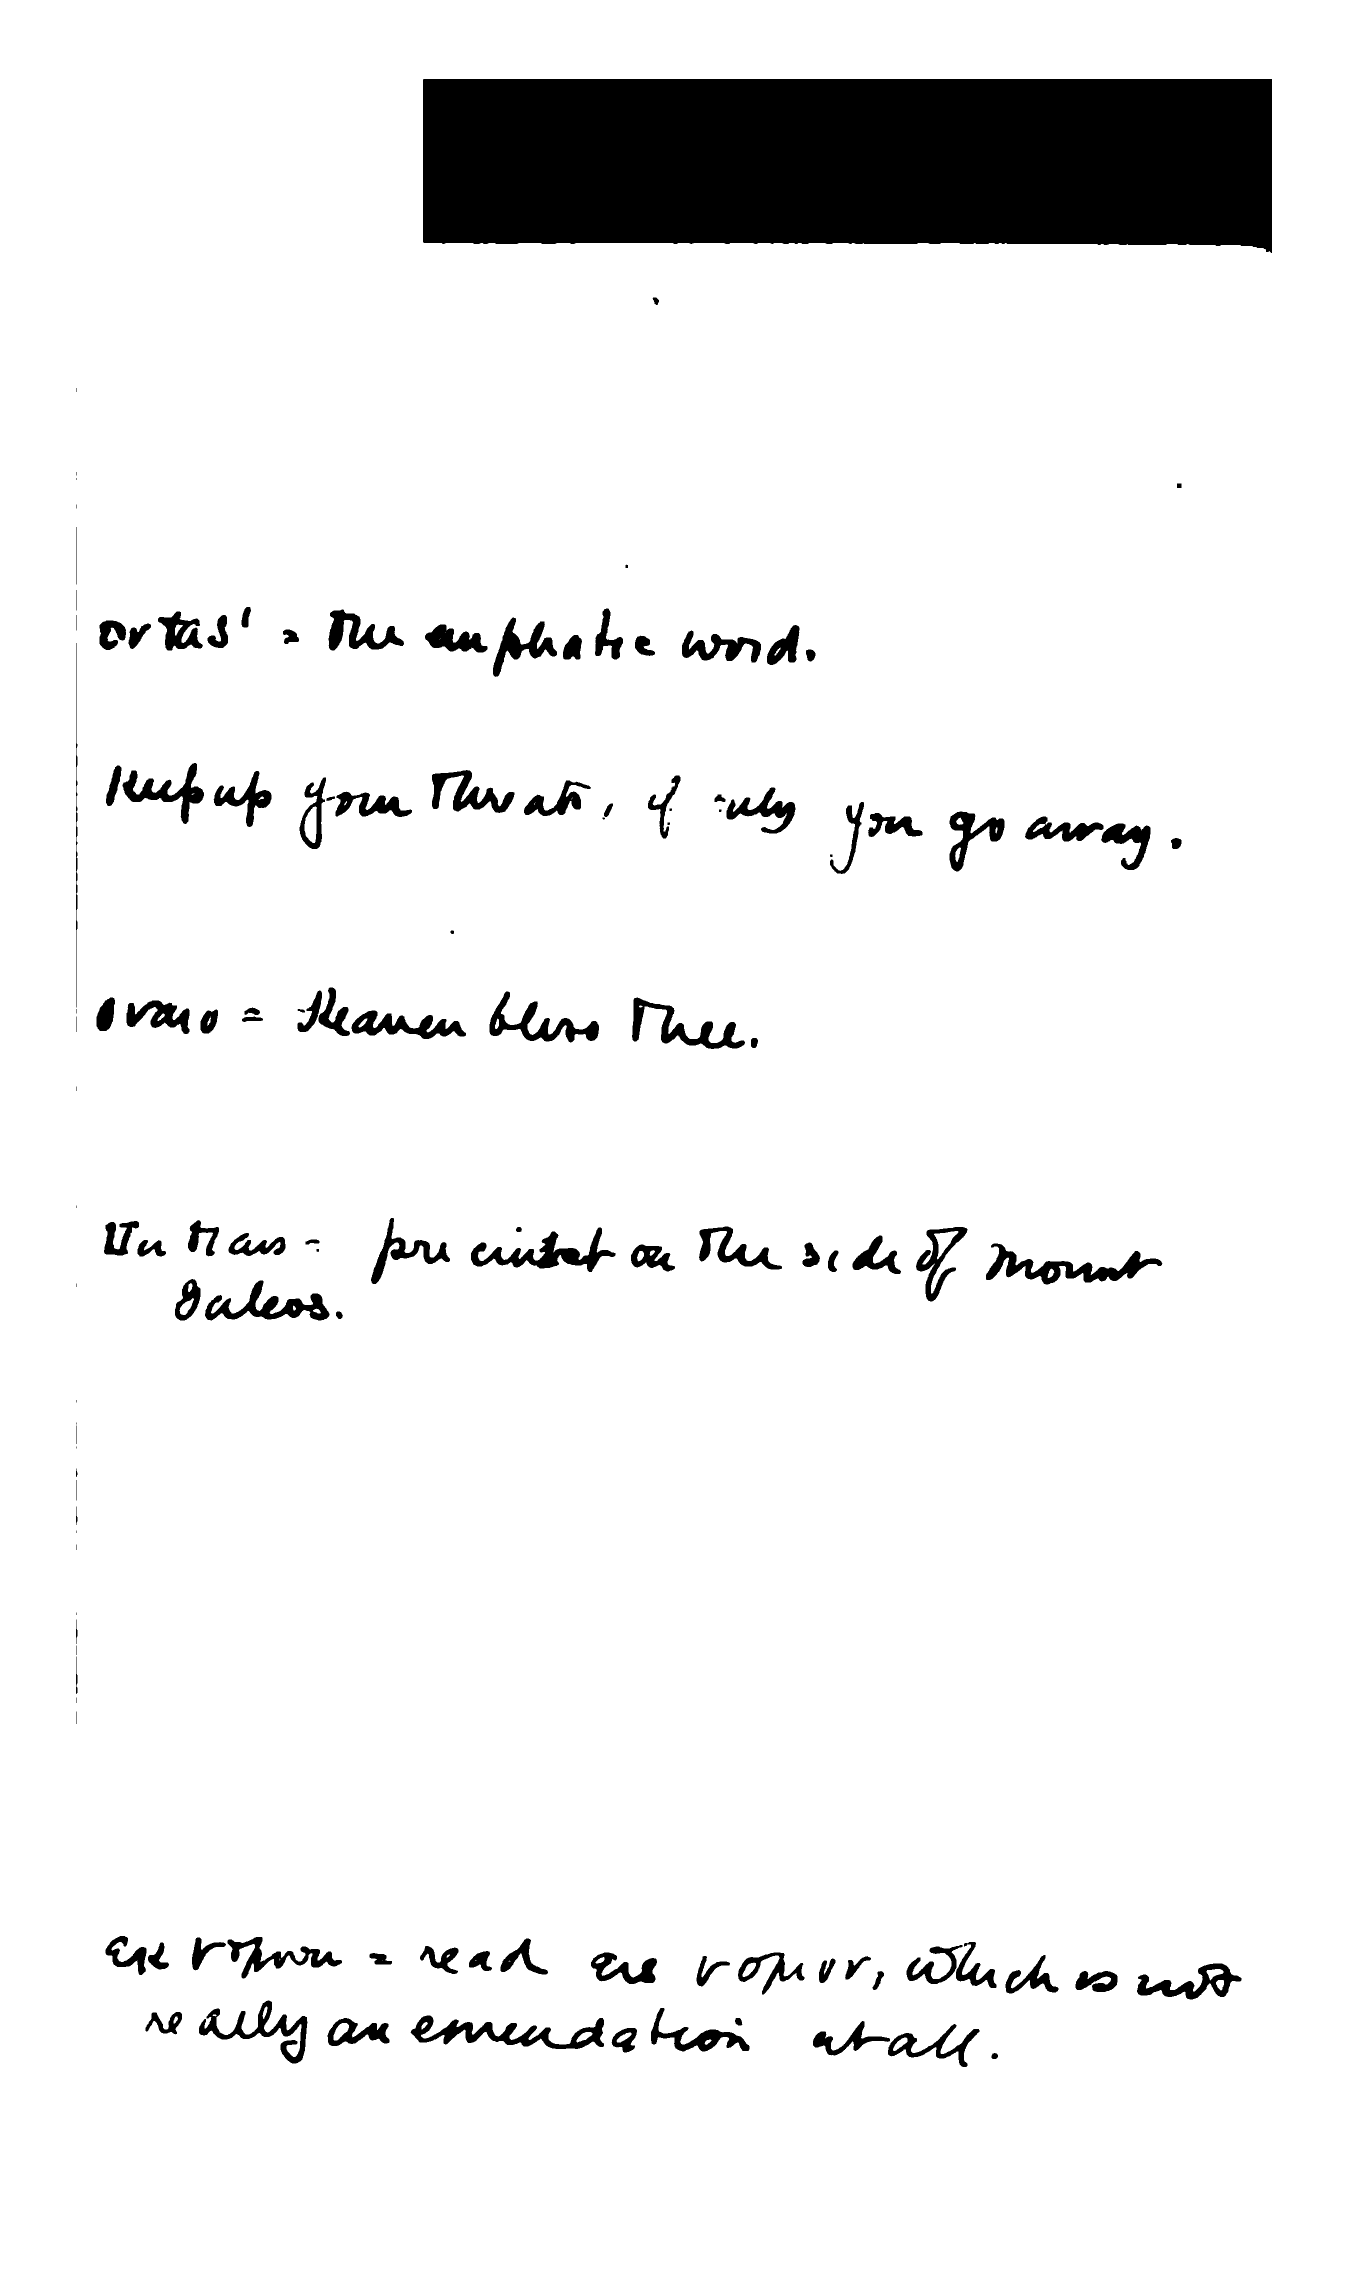 = The emphatic word.
Keep up your threats, if only you go away.
ὄναιο = Heaven bless Thee.
precinct on the side of Mount
Galeos.
= read εις νομον, which is not
really an emendation at all.